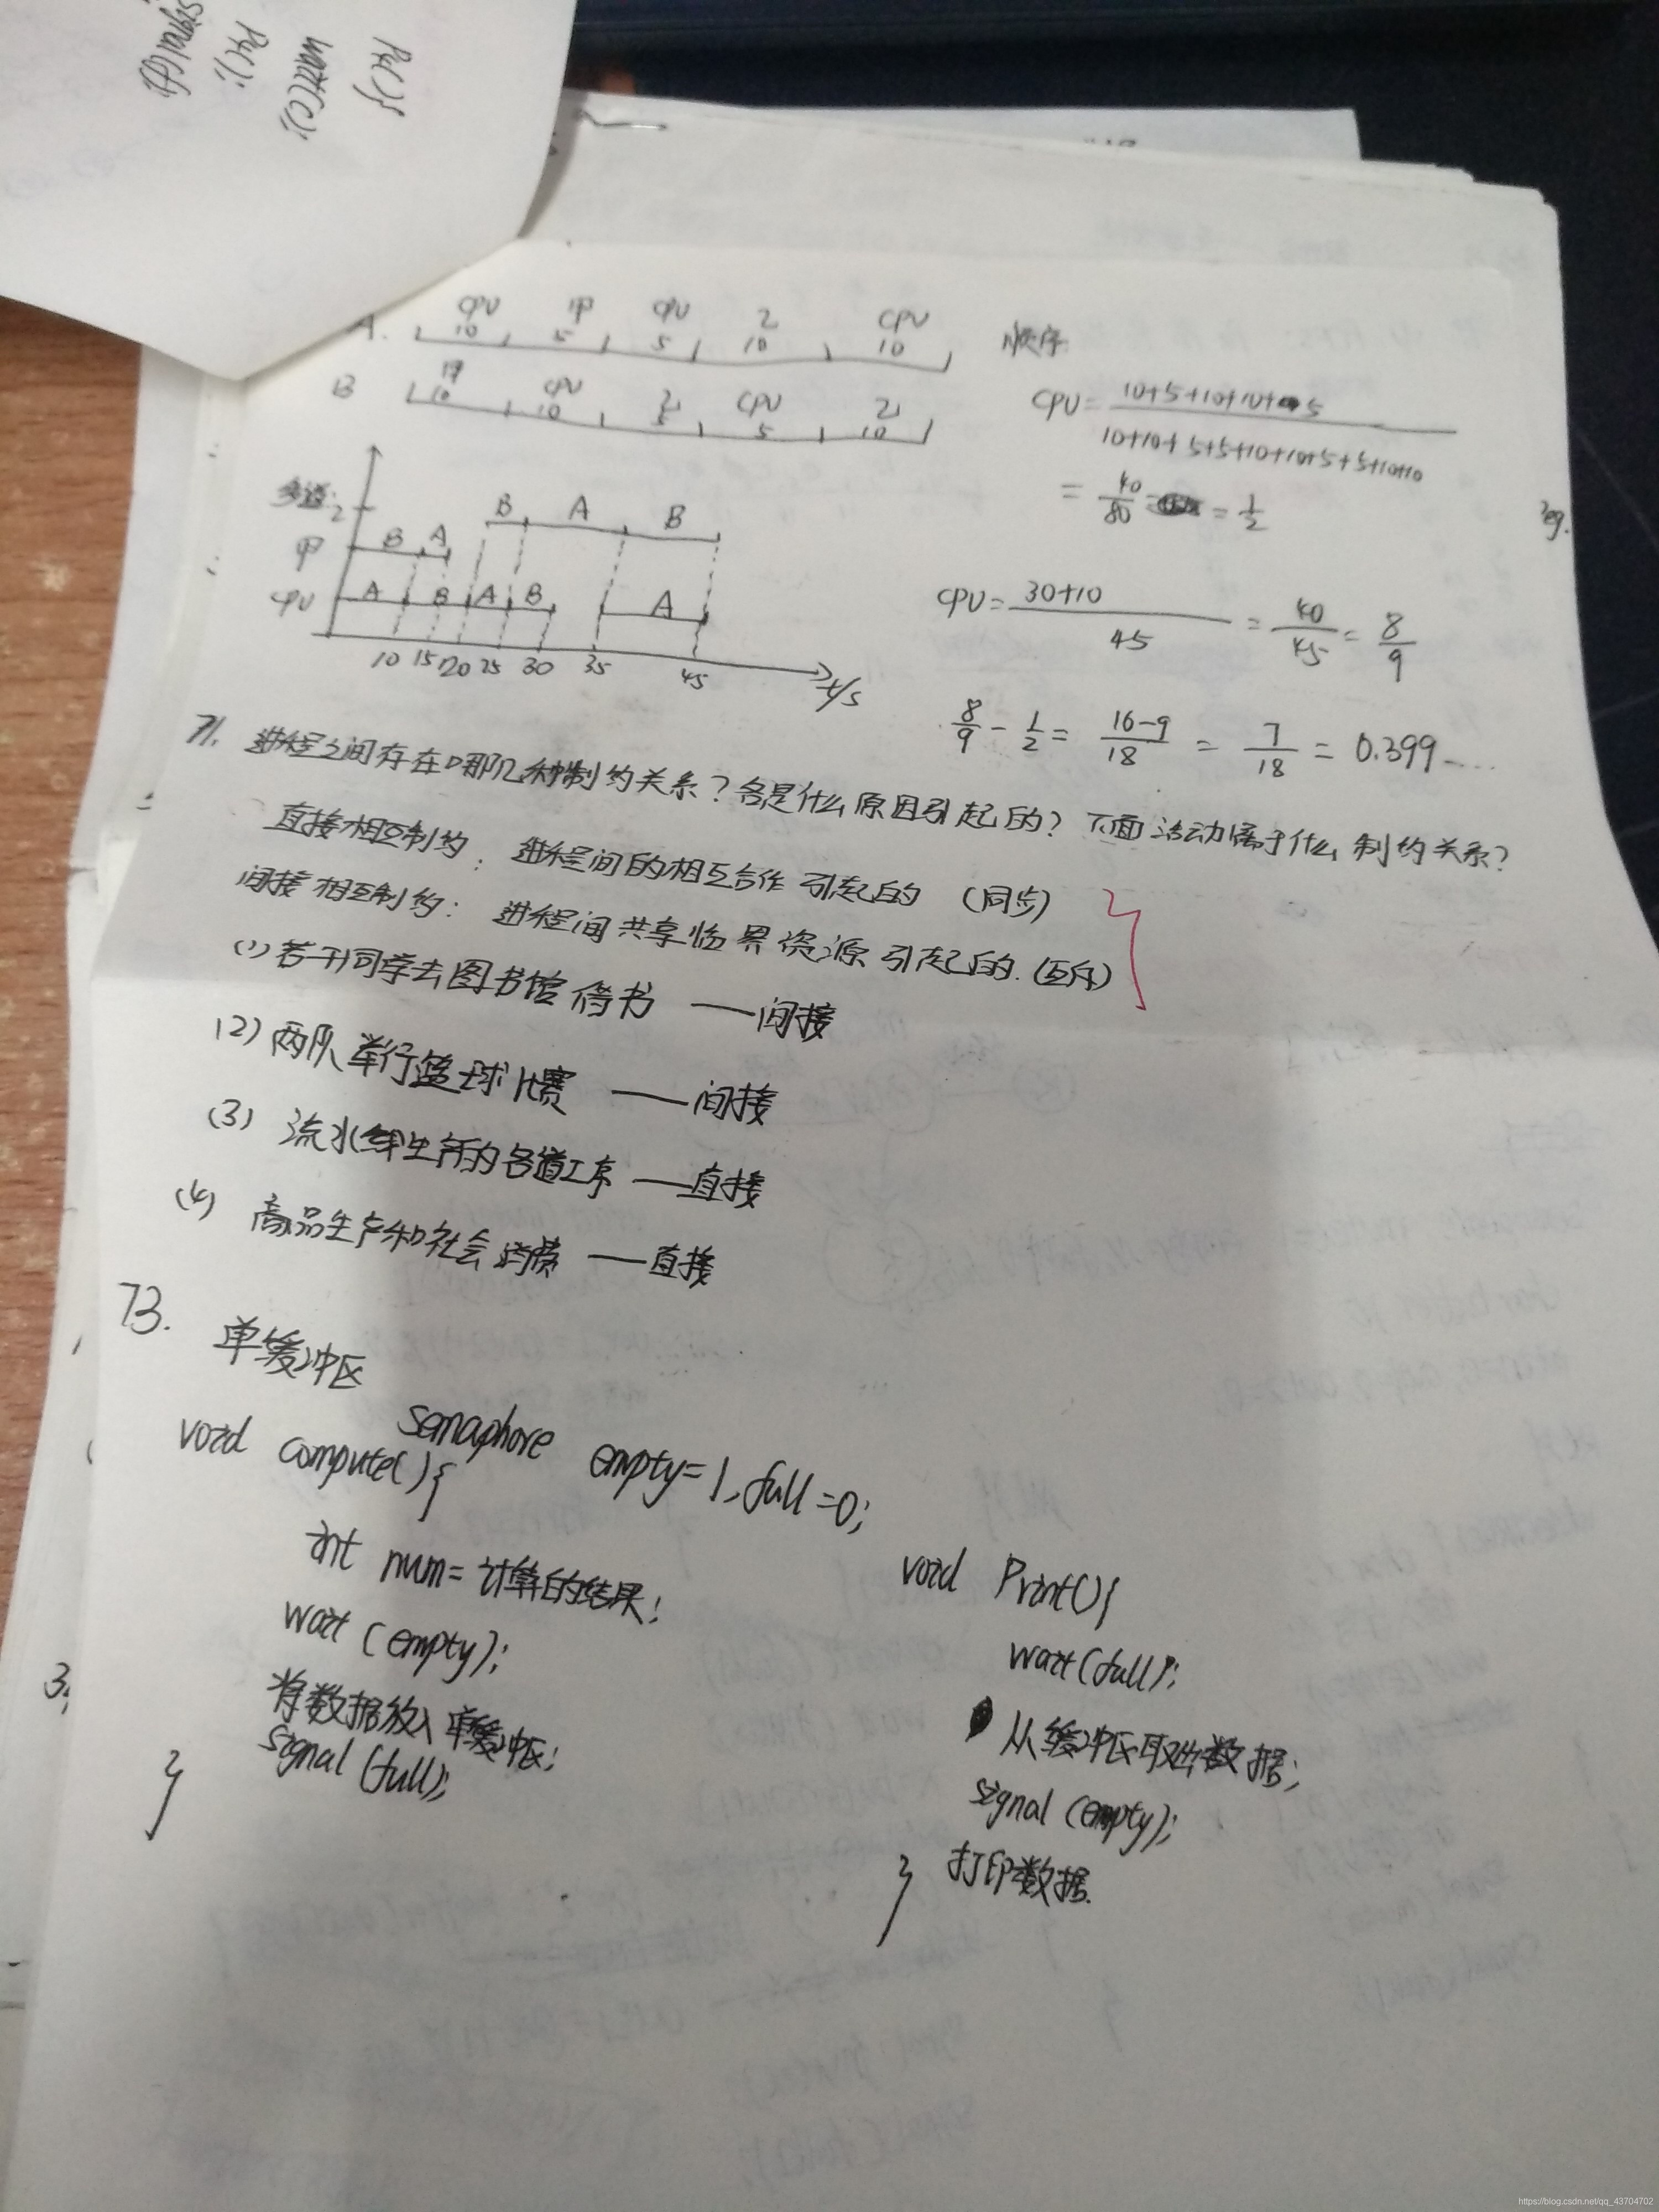 P4(){
wait(c);
P4();
signal(f)
A. CPU 甲 CPU 乙 CPU
10 5 5 10 10
顺序
B 甲 CPU 乙 CPU 乙
10 10 5 5 10
CPU= 10+5+10+10+5
10+10+5+5+10+10+5+5+10+10
= 40/80 = 1/2
多道:
乙 B A B
甲 B A
CPU A B A B A
10 15 20 25 30 35 45 t/s
CPU= 30+10 / 45 = 40/45 = 8/9
8/9 - 1/2 = 16-9/18 = 7/18 = 0.399....
eg.
71. 进程之间存在哪几种制约关系?各是什么原因引起的?下面活动属于什么制约关系?
直接相互制约: 进程间的相互合作引起的 (同步)
间接相互制约: 进程间共享临界资源引起的.(互斥)
(1)若干同学去图书馆借书 ——间接
(2)两队举行篮球比赛 ——间接
(3) 流水线生产的各道工序 ——直接
(4) 商品生产和社会消费 ——直接
73. 单缓冲区
semaphore empty=1,full=0;
void compute(){
int num=计算的结果;
wait(empty);
将数据放入单缓冲区;
signal(full);
}
void Print(){
wait(full);
从缓冲区取出数据;
signal(empty);
打印数据.
}
3;
https://blog.csdn.net/qq_43704702